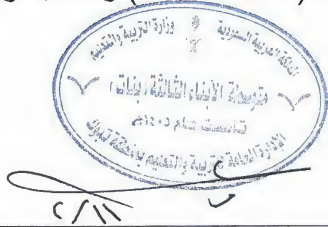 المملكة العربية السعودية وزارة التربية والتعليم
متوسطة الأبناء الثالثة (بنات)
تأسست عام ١٤٠٥هـ
الإدارة العامة للتربية والتعليم بمنطقة تبوك
٢/١١